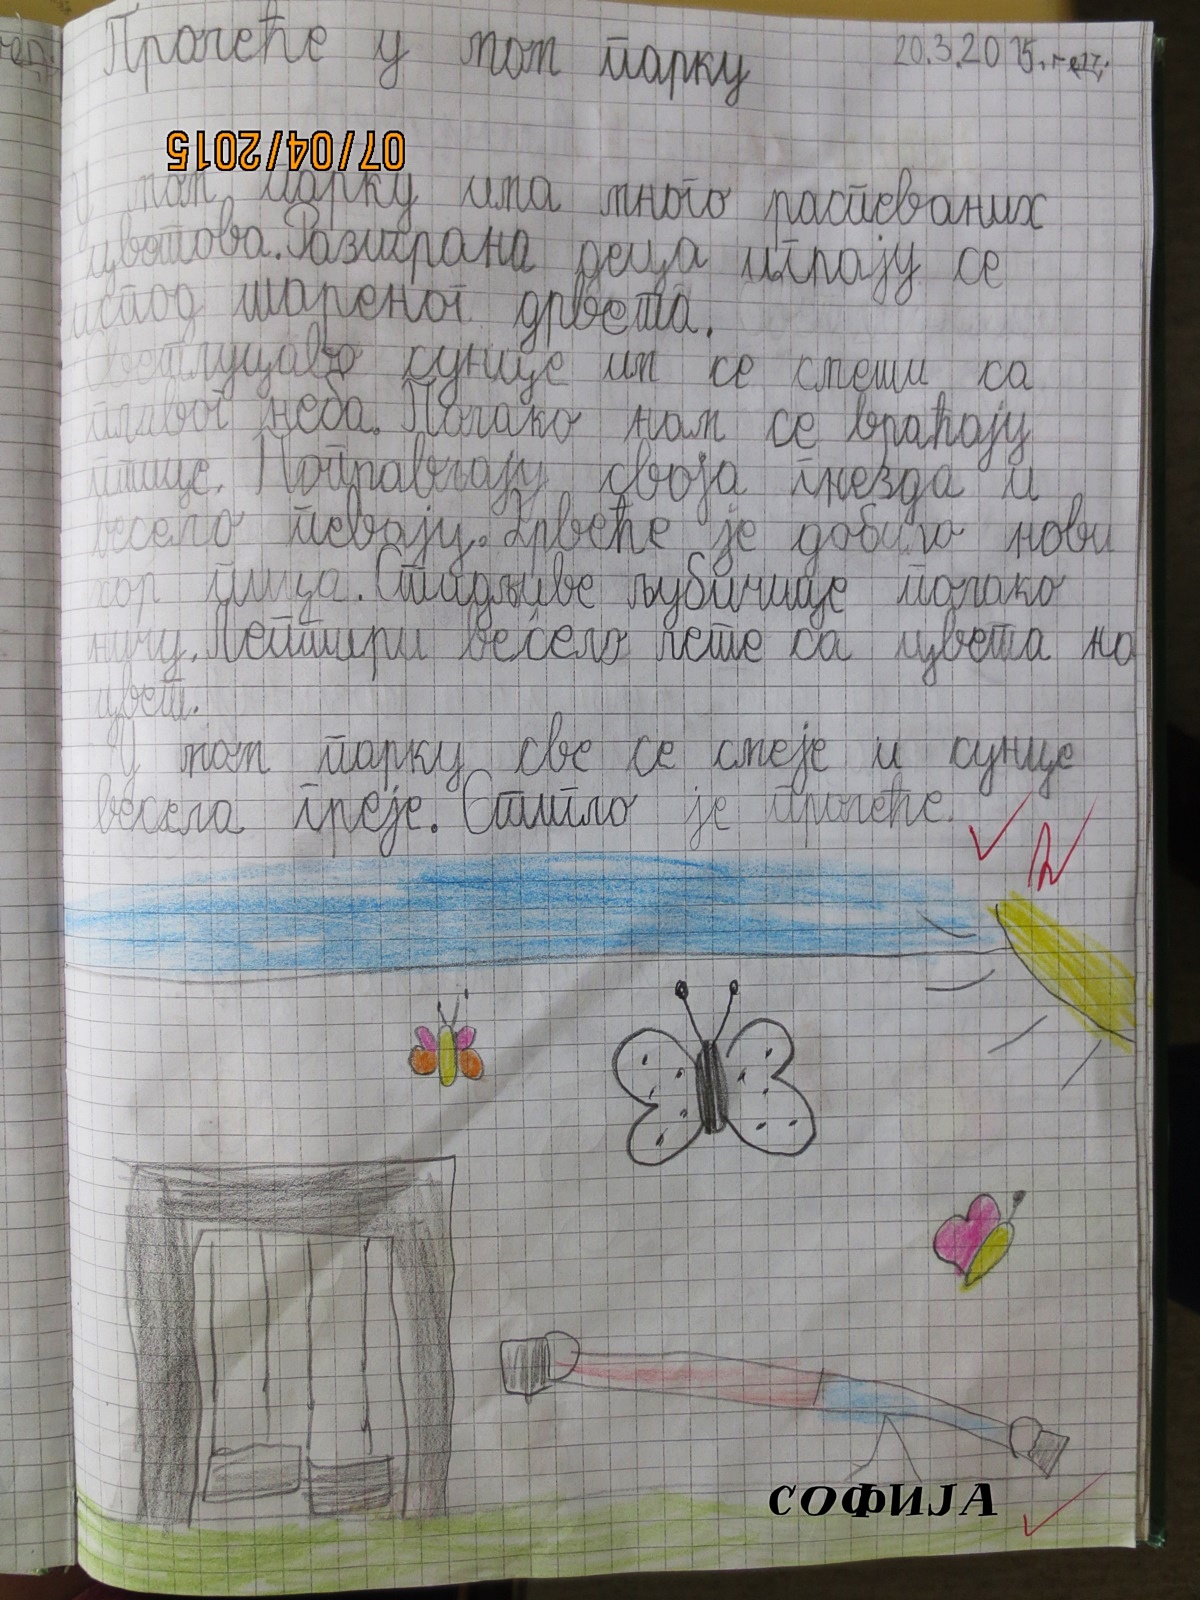 Пролеће у мом парку 20.3.2015. год.
07/04/2015
У мом парку има много распеваних
цветова. Разиграна деца играју се
испод шареног дрвета.
Светлуцаво сунце им се смеши са
плавог неба. Полако нам се враћају
птице. Поправљају своја гнезда и
весело певају. Дрвеће је добило нови
хор птица. Стидљиве љубичице полако
ничу. Лептири весело лете са цвета на
цвет.
У мом парку све се смеје и сунце
весела греје. Стигло је пролеће.
СОФИЈА